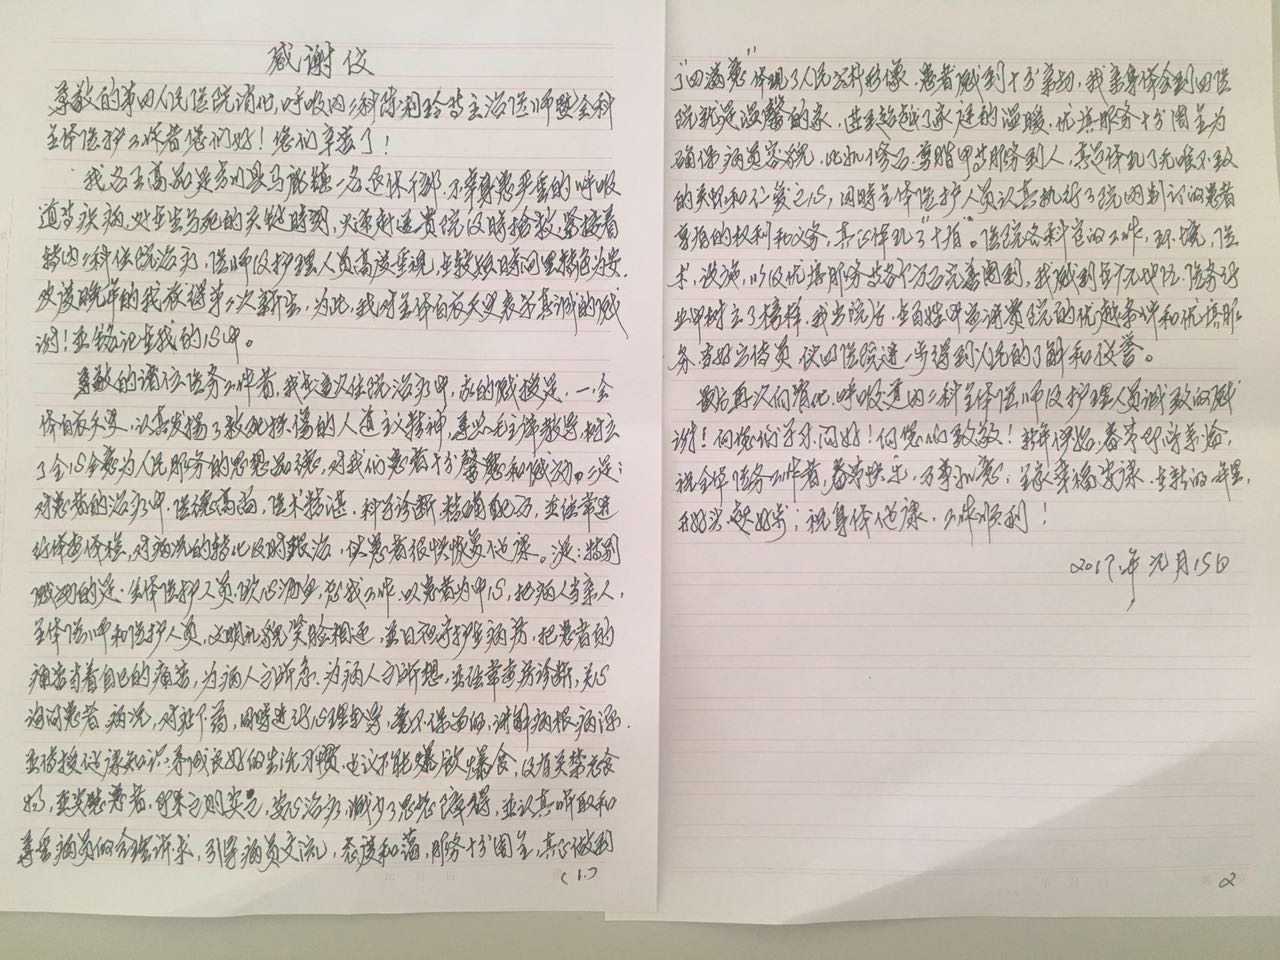 感谢信
尊敬的第四人民医院消化,呼吸内二科陈利玲等主治医师暨全科
全体医护工作者您们好!您们辛苦了!
我名王高 是 县马 镇一名退休干部,不幸身患严重的呼吸
道等疾病,处在生与死的关键时刻,火速转送贵院及时抢救,紧接着
转内二科住院治疗,医师及护理人员高度重视,在较短时间里转危为安.
使晚年的我获得第二次新生,为此,我对全体白衣天使表示真诚的感
谢!并铭记在我的心中。
尊敬的诸位医务工作者,我通过这次住院治疗中,亲的感授是.一:全
体白衣天使,认真发扬了救死扶伤的人道主义精神,尊照毛主席教导,树立
了全心全意为人民服务的思想品德,对我们患者十分 和感动。二是:
对患者的治疗中,医德高尚,医术精湛,科学诊断,精确配方,并经常进
行体查体检,对病况的转化及时救治,使患者很快恢复了健康。三是:特别
感动的是,全体医护人员,做心 ,忘我工作,以患者为中心,把病人当亲人,
全体医师和医护人员,文明礼貌笑脸相迎,并日夜守护在病房,把患者的
痛苦当着自己的痛苦,为病人之所急.为病人之所想,并经常查房诊断,关心
询问患者病况,对症下药,同时进行心理 ,毫不保留的,讲解病根、病源.
并传授健康知识:养成良好的生活习惯,建议不能爆饮爆食,及有关禁忌食
物,要求患者,即来之则安之,安心治疗,减少了思想障碍,并认真听取和
尊重病员的合理诉求,引导病员交流,态度和蔼,服务十分周全,真正做到
(1.)
了"四满意"体现了人民公仆形像,患者感到十分亲切,我亲身体会到四医
院就是温馨的家,甚至超越了家庭的温暖,优质服务十分周全为
确保病员容貌,此如修面,剪脂甲等服务到人,真是体现了无微不致
的关怀和仁爱之心,同时全体医护人员认真执行了院内制订的患者
享有的权利和义务,真正体现了"十有"。医院各科室的工作,环境,医
术,设施,以及优质服务等各个方面完善周到,我感到在广元地区.医务行
业中树立了榜样.我出院后,在百姓中并讲贵院的优越条件和优质服
务,当好宣传员,使四医院进一步得到人民的了解和信誉。
最后再次向消化.呼吸道内二科全体医师及护理人员诚致的感
谢!向您们学习问好!向您们致敬!新年伊始,春节即将来临,
祝全体医务工作者,春节快乐,万事如意;全家幸福安康.在新的一年里,
开好头.起好步;祝身体健康.工作顺利!
2017.年元月15日
2